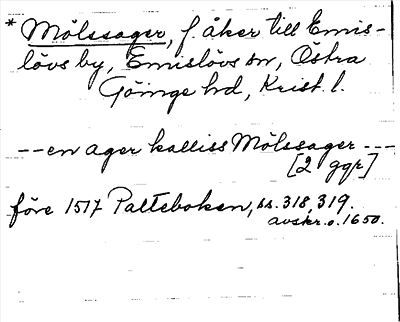 * Mölssager, f. åker till Emis-
lövs by, Emislövs sn, Östra
Göinge hd, Krist. l.
-- en ager kalliss Mölssager ---
[2 ggr]
före 1517 Palteboken, ss. 318, 319.
avskr. o. 1650.